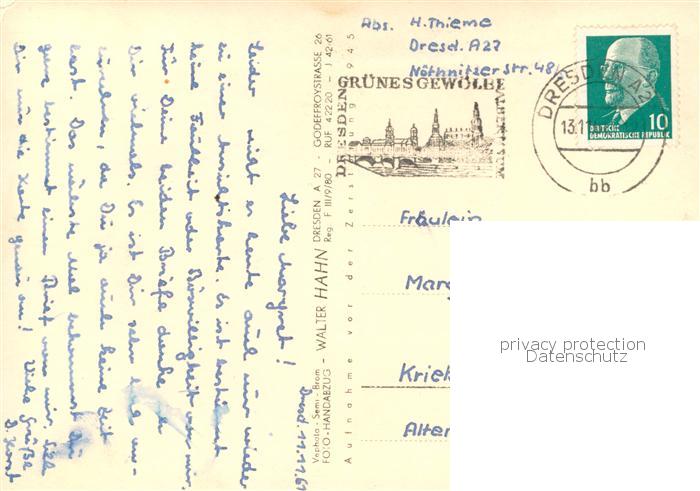 Abs. H. Thieme
Dresd. A27
Nöthnitzerstr. 48
GRÜNES GEWÖLBE
DRESDEN
DRESDEN A2
13.11
bb
10
DEUTSCHE
DEMOKRATISCHE REPUBLIK
Fräulein
Marg
Kriek
Alten
privacy protection
Datenschutz
Aufnahme vor der Zerstörung 1945
Vephota - Semi - Brom - WALTER HAHN DRESDEN A 27 - GODEFFROYSTRASSE 26
FOTO-HANDABZUG - Reg. F III/9/80 - RUF 42220 - J 42-61
Dresd. 11.11.61
Liebe Margret!
Leider reicht es heute auch nur wieder
zu einer Ansichtskarte. Es ist bestimmt
keine Faulheit oder Böswilligkeit von mir.
Für Deine beiden Briefe danke ich
Dir vielmals. Es ist Dir sehr zu
da Du ja auch keine Zeit
hast. Das nächste Mal bekommst Du
ganz bestimmt einen Brief von mir.
Dir nur die Karte genau an! Viele Grüße
D. Horst